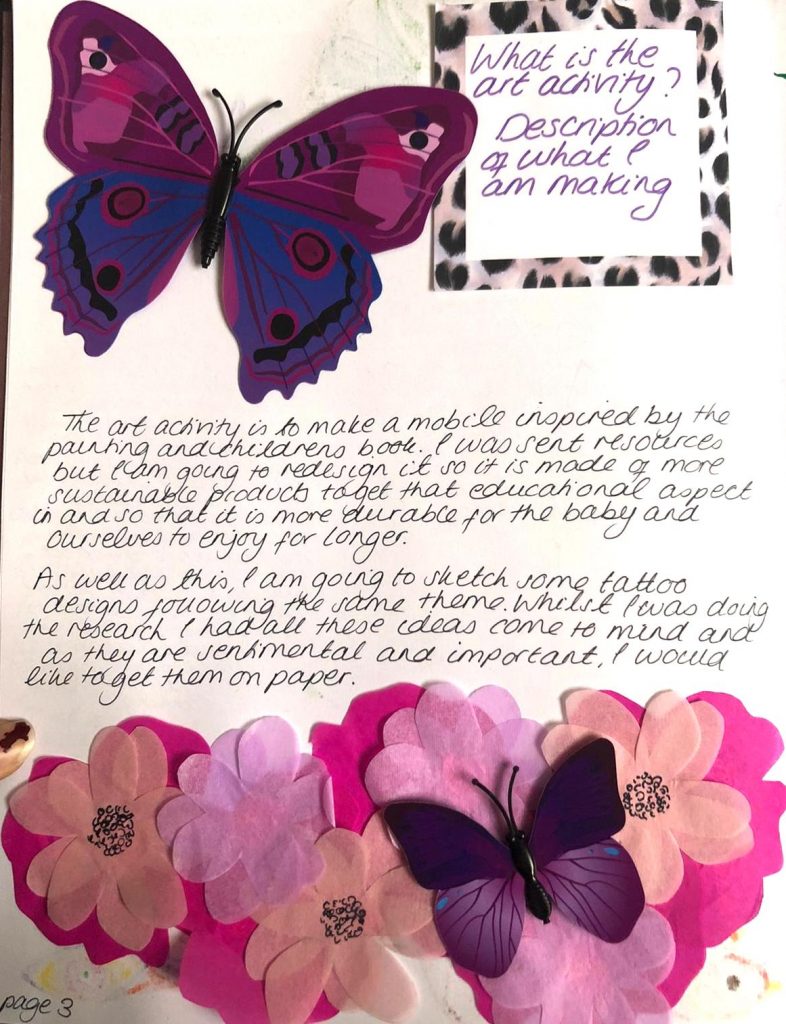 What is the
art activity?
Description
of what I
am making
The art activity is to make a mobile inspired by the
painting and childrens book. I was sent resources
but I am going to redesign it so it is made of more
sustainable products to get that educational aspect
in and so that it is more durable for the baby and
ourselves to enjoy for longer.
As well as this, I am going to sketch some tattoo
designs following the same theme. Whilst I was doing
the research I had all these ideas come to mind and
as they are sentimental and important, I would
like to get them on paper.
page 3